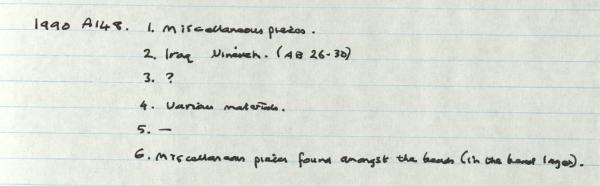 1990 A148. 1. Miscellaneous pieces.
2. Iraq Nineveh. (AB 26-30)
3. ?
4. Various materials.
5. —
6. Miscellaneous pieces found amongst the beads (in the bead layer).